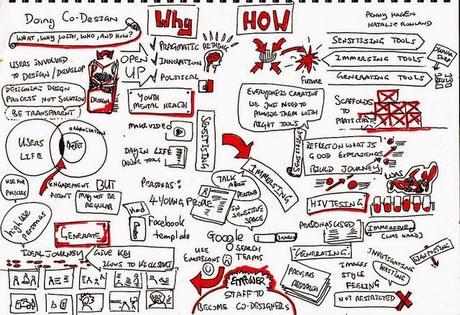 Doing Co-Design
WHAT, WHY, WITH, WHO, AND HOW?
USERS INVOLVED
TO DESIGN/DEVELOP
DESIGNERS DESIGN
PROCESS NOT SOLUTION
BE TRANSPARENT
DESIGN
USERS
LIFE
ORGANISATION
ENGAGEMENT
POINT
BUT
MAY NOT BE
REGULAR
GENERATE
IDEAL JOURNEY
GIVE KEY
Why
OPEN
UP
PRAGMATIC
INNOVATION
POLITICAL
YOUTH
MENTAL HEALTH
MAKE VIDEO
DAY IN LIFE
TOOLS
PERSONAS:
4 YOUNG PEOPLE
Facebook
template
SENSITISING
HOW
FUTURE
EVERYONE IS CREATIVE
WE JUST NEED TO
PROVIDE THEM WITH
RIGHT TOOLS
IMMERSING
TALK
ABOUT
PERSONAS
SENSITIVE
SPACE
Google
SEARCH
TEAMS
USE
EMOTICONS
EMPOWER
STAFF TO
BECOME CO-DESIGNERS
PENNY HAGEN
NATALIE ROWLAND
SENSITISING TOOLS
IMMERSING TOOLS
GENERATING TOOLS
SCAFFOLDS
TO
PARTICIPATE
REFLECTION WHAT IS
GOOD EXPERIENCE
BUILD JOURNEY
HIV TESTING
PERSONAS USED
IMMERSING
GENERATING
PREVIOUS
RESEARCH
IMAGES
STYLE
FEELING
NOT RESTRICTED